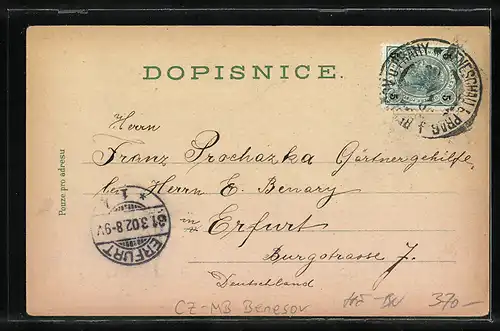 DOPISNICE.
Herrn
Franz Procházka Gärtnergehilfe
bei Herrn E. Benary
in Erfurt
Burgstrasse 7.
Deutschland
Pouze pro adresu
5 5
BENESCHAU B. PRAG
U PRAHY
* 1
31.3.02.8-9V.
ERFURT
CZ-MB Benesov
370-